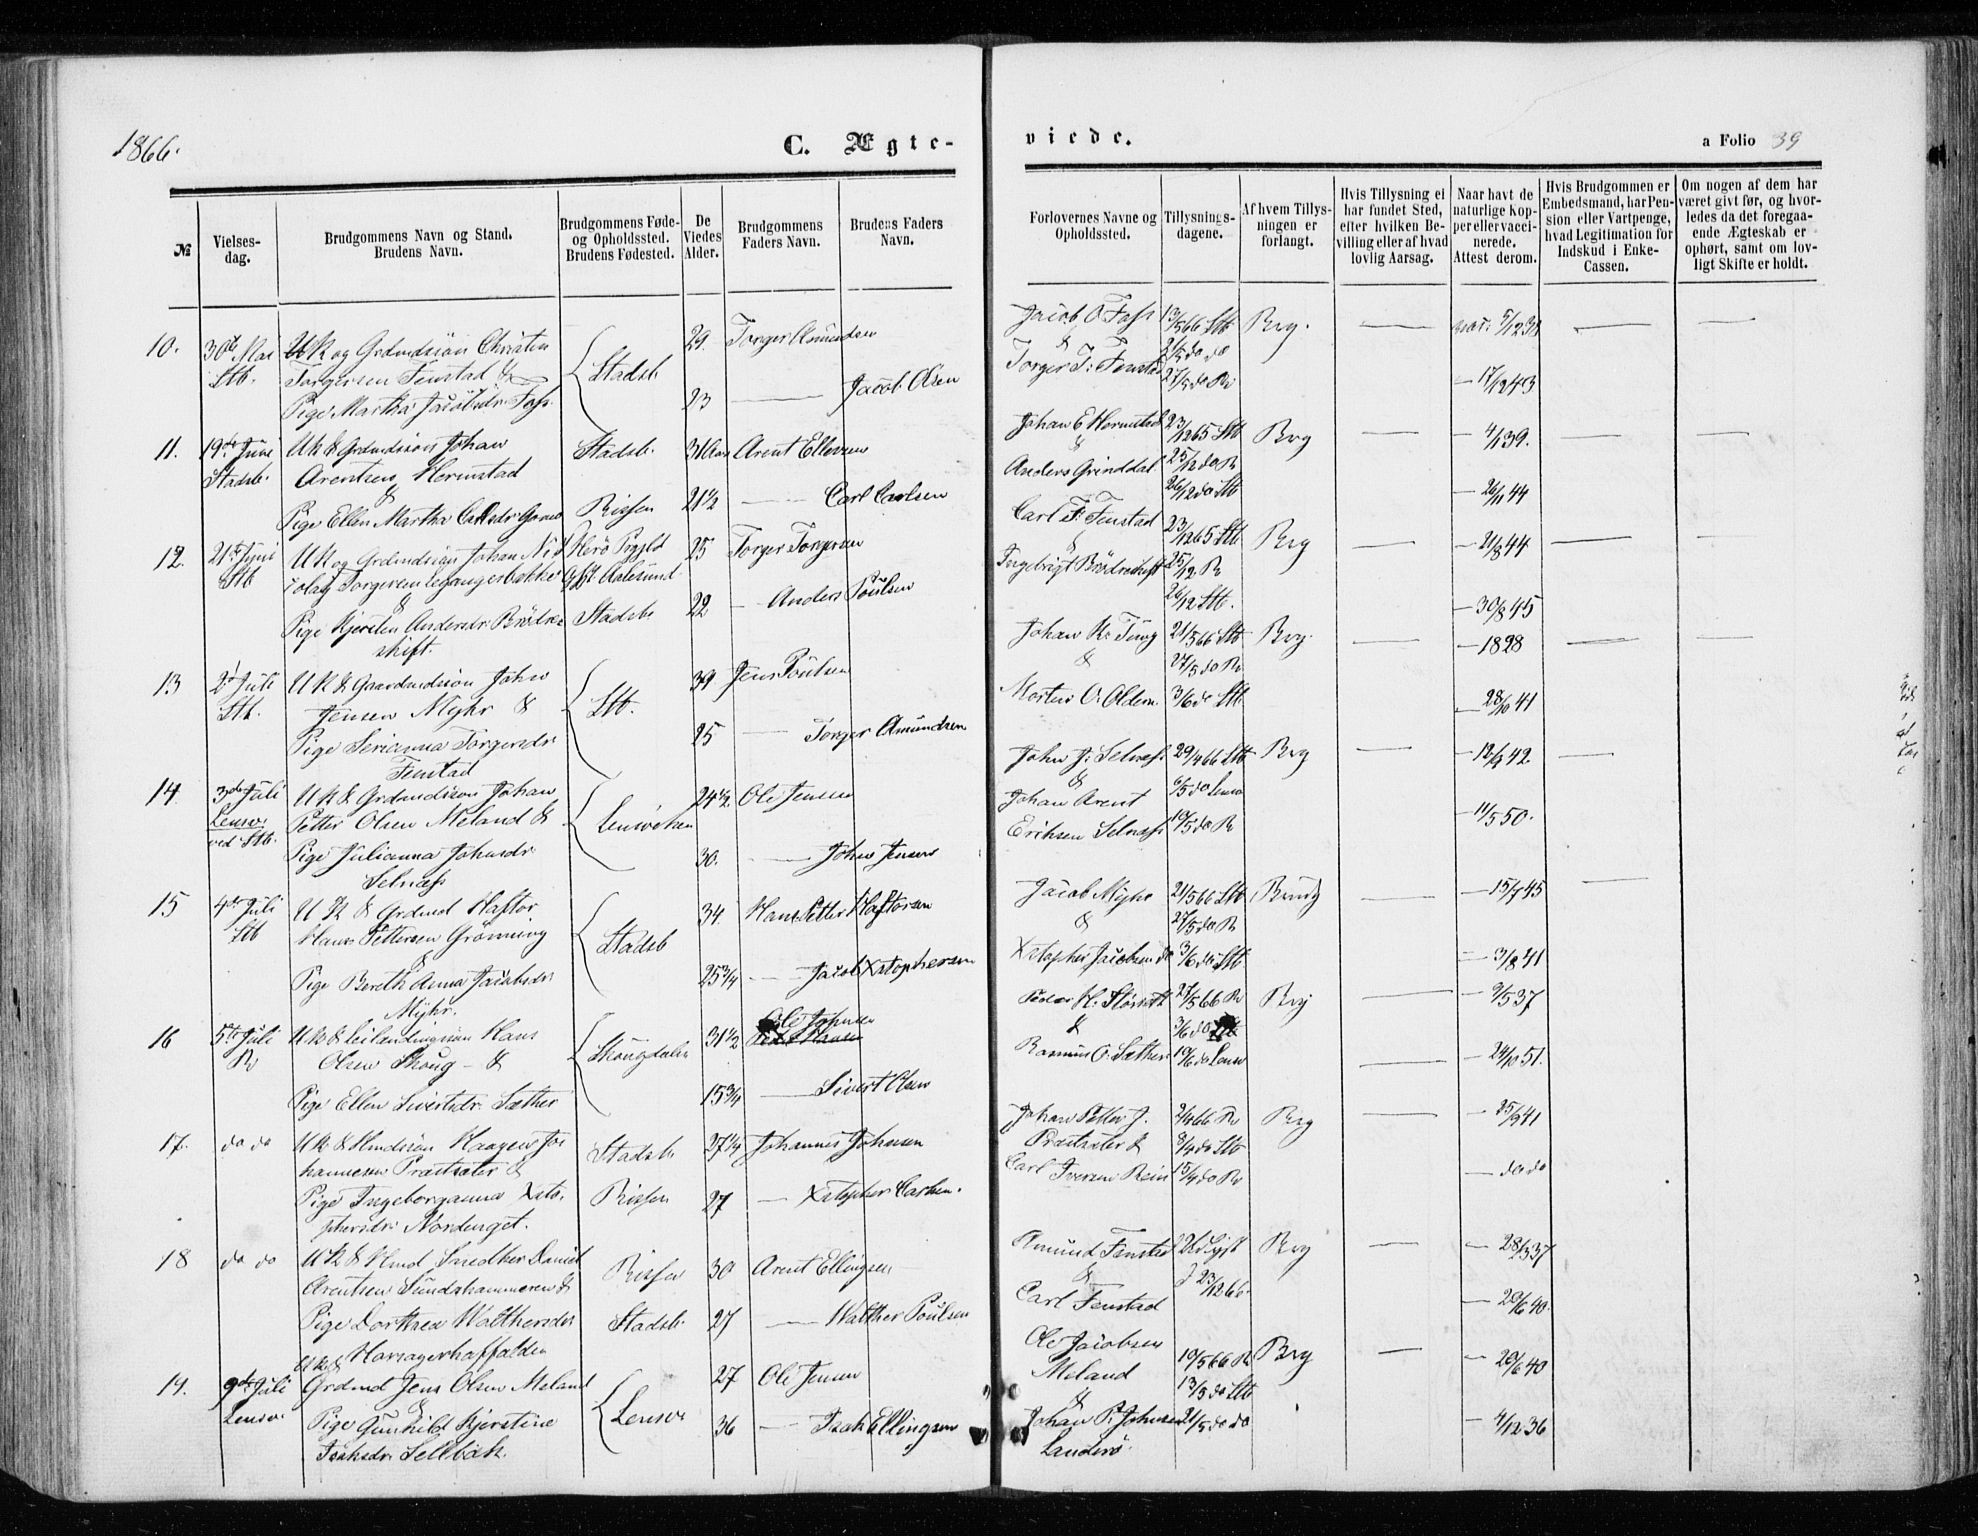 1866.
C. Ægte-
viede.
a Folio 39
№
Vielses-
dag.
Brudgommens Navn og Stand.
Brudens Navn.
Brudgommens Føde-
og Opholdssted.
Brudens Fødested.
De
Viedes
Alder.
Brudgommens
Faders Navn.
Brudens Faders
Navn.
Forlovernes Navne og
Opholdssted.
Tillysnings-
dagene.
Af hvem Tillys-
ningen er
forlangt.
Hvis Tillysning ei
har fundet Sted,
efter hvilken Be-
villing eller af hvad
lovlig Aarsag.
Naar havt de
naturlige Kop-
per eller vacci-
nerede.
Attest derom.
Hvis Brudgommen er
Embedsmand, har Pen-
sion eller Vartpenge,
hvad Legitimation for
Indskud i Enke-
Cassen.
Om nogen af dem har
været givt før, og hvor-
ledes da det foregaa-
ende Ægteskab er
ophørt, samt om lov-
ligt Skifte er holdt.
10. 30te Mai Stb.
UK og Grdmdsön Christen
Torgersen Fenstad &
Pige Martha Jacobsdr Foss
Stadsb
29. Torger Amundsen
23 — Jacob Olsen
Jacob O. Foss
&
Torger T. Fenstad
13/5 66 Stb
21/5 do do
27/5 do R
Brg.
5/12 38
— 17/12 43
11. 19de Juni Stadsb.
UK & Grdmdsön Johan
Arentsen Hermstad
&
Pige Ellen Martha Carlsdr
Stadsb.
Rissen
31 Aar Arent Ellevsen
21½ — Carl Carlsen
Johan E Hermstad
&
Anders Grinddal
23/12 65 Stb
25/12 do R
26/12 do Stb
Brg
— 4/1 39.
— 26/11 44
12. 21de Juni Stb
UK og Grdmdsön Johan
Torgersen
&
Pige Kjersten Andersdr Brödre-
skift.
Herö Prgjld
Aalesund
Stadsb.
25 Torger Torgersen
22 — Anders Poulsen
Carl F. Fenstad
&
Ingebrigt Brödreskift
23/12 65 Stb
25/12 R
26/12 Stb.
Brg
— 21/8 44
— 30/8 45
13 2d Juli Stb.
UK & Gaardmdsön John
Jensen Myhr &
Pige Serianna Torgersdr
Fenstad
Stb.
39 Jens Poulsen
25 — Torger Amundsen
Johan K. Tung
&
Morten O. Olden
21/5 66 Stb
27/5 do R
3/6 do Stb
Brg.
— 1828
— 28/10 41
14 3de Juli
Lensv.
ved Stb.
UK & Grdmdsön Johan
Petter Olsen Meland &
Pige Julianna Johnsdr
Selnæss
Lensviken
24½ Ole Jensen
30. — John Jensen
John J. Selnæss
&
Johan Arent
Eriksen Selnæss
29/4 66 Stb
6/5 do Lensv
10/5 do R
Brg
— 12/9 42.
— 11/5 50.
15 4de Juli Stb
UK & Grdmd Haftor
Hans Pettersen Grönning
&
Pige Bereth Anna Jacobsdr
Myhr.
Stadsb
34. Hans Petter Haftorsen
25¾ — Jacob Xstophersen
Jacob Myhr
&
Xstopher Jacobsen do
21/5 66 Stb
27/5 do R
3/6 do Stb
Brudg
— 15/7 45
— 3/8 41
16 5te Juli R
UK & Leilendingsön Hans
Olsen Skoug — &
Pige Ellen Sivertsdr Sæther
Skougdalen
31½ Ole Johnsen
15¾ — Sivert Olsen
Peder H. Slörseth
&
Rasmus O. Sæther
27/5 66 R
3/6 do Stb
10/6 do Lensv
Brg
— 9/5 37
— 24/10 51.
17. do do
UK & Hmdsön Haagen Jo-
hannesen Præstsæter &
Pige Ingeborganna Xsto-
phersdr Nordenget.
Stadsb.
Rissen
27¼ Johannes Johnsen
27 — Xstopher Carlsen.
Johan Petter J.
Præstsæter &
Carl Iversen Rein
2/4 66 R
8/4 do Stb
15/4 do R
Brg
— 25/9 41
— do do
18 do do
UK & Hmd Snedker Daniel
Arentsen Sundshammeren &
Pige Dorthea Walthersdr
Harsagerhaffalden
Rissen
Stadsb.
30 Arent Ellingsen
27 — Walther Poulsen
Amund Fenstad
&
Carl Fenstad
Brg
— 28/3 37
— 20/6 40.
19. 9de Juli
Lensv.
UK &
Grdmd Jens Olsen Meland
&
Pige Gunhild Kjerstine
Isaksdr Sellbæk.
Lensv.
27 Ole Jensen
36 — Isak Ellingsen
Ole Jacobsen
Meland
&
Johan P. Johnsen
Landrö.
10/5 66 R
13/5 do Stb
21/5 do do
Brg
— 20/6 40
— 4/12 36